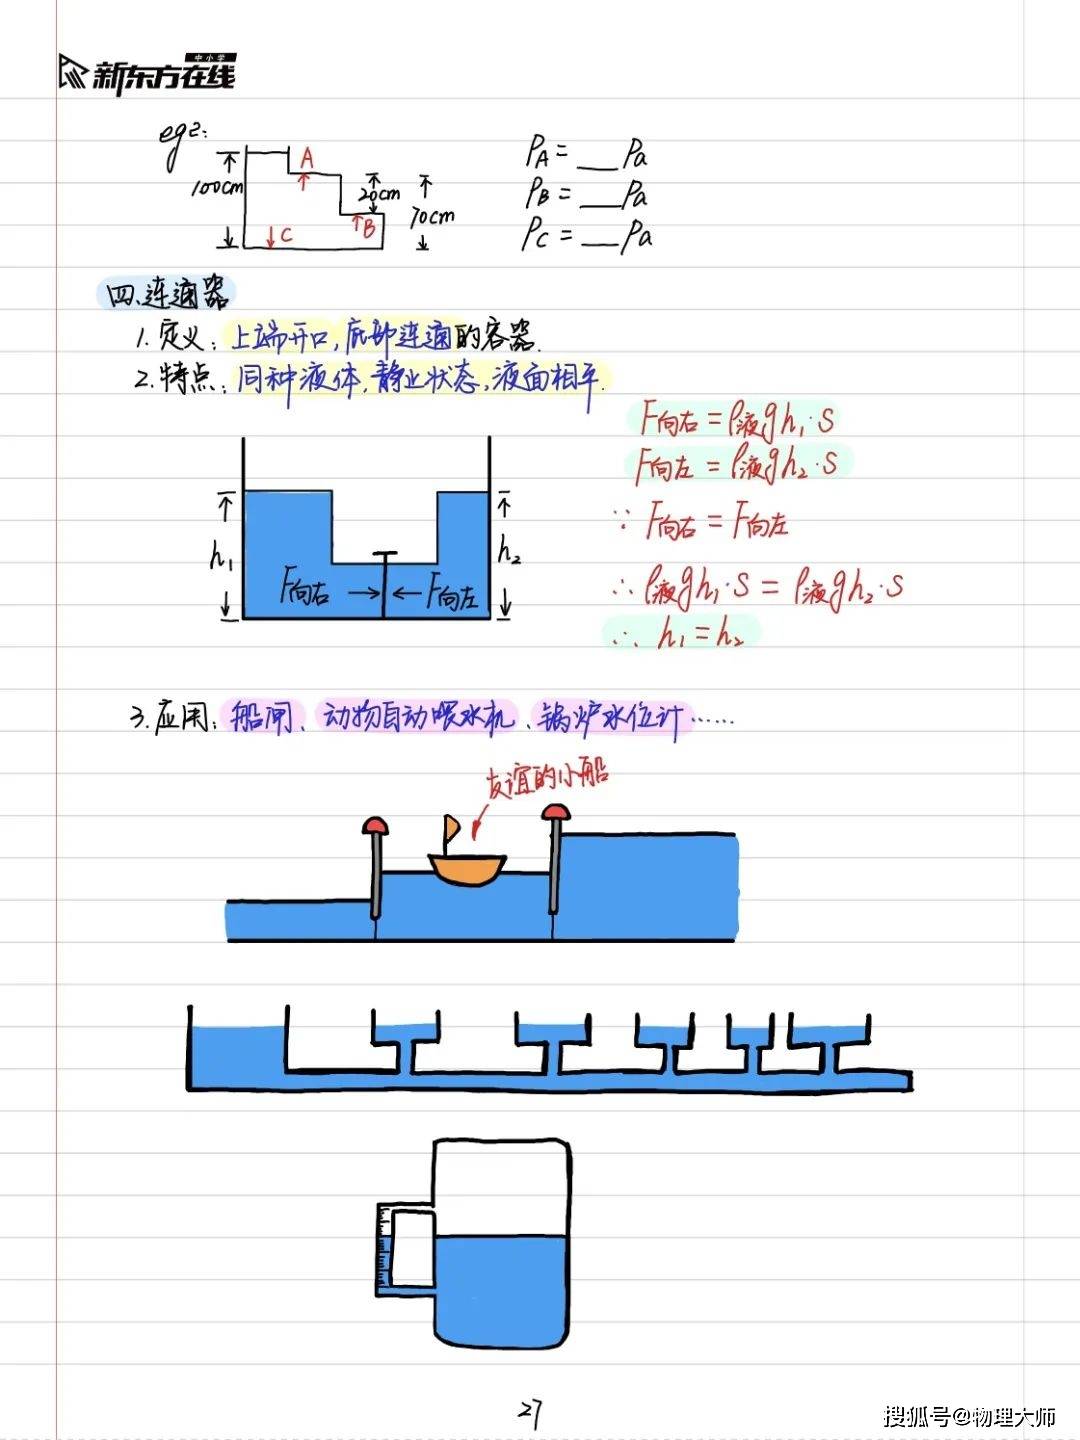 中小学
新东方在线
eg2:
A
100cm
20cm
70cm
C
B
PA = ___ Pa
PB = ___ Pa
PC = ___ Pa
四、连通器
1.定义：上端开口,底部连通的容器.
2.特点：同种液体,静止状态,液面相平.
F向右 = ρ液gh₁·S
F向左 = ρ液gh₂·S
∵ F向右 = F向左
∴ ρ液gh₁·S = ρ液gh₂·S
∴ h₁ = h₂
h₁
h₂
F向右
F向左
3.应用：船闸、动物自动喂水机、锅炉水位计……
友谊的小船
27
搜狐号@物理大师